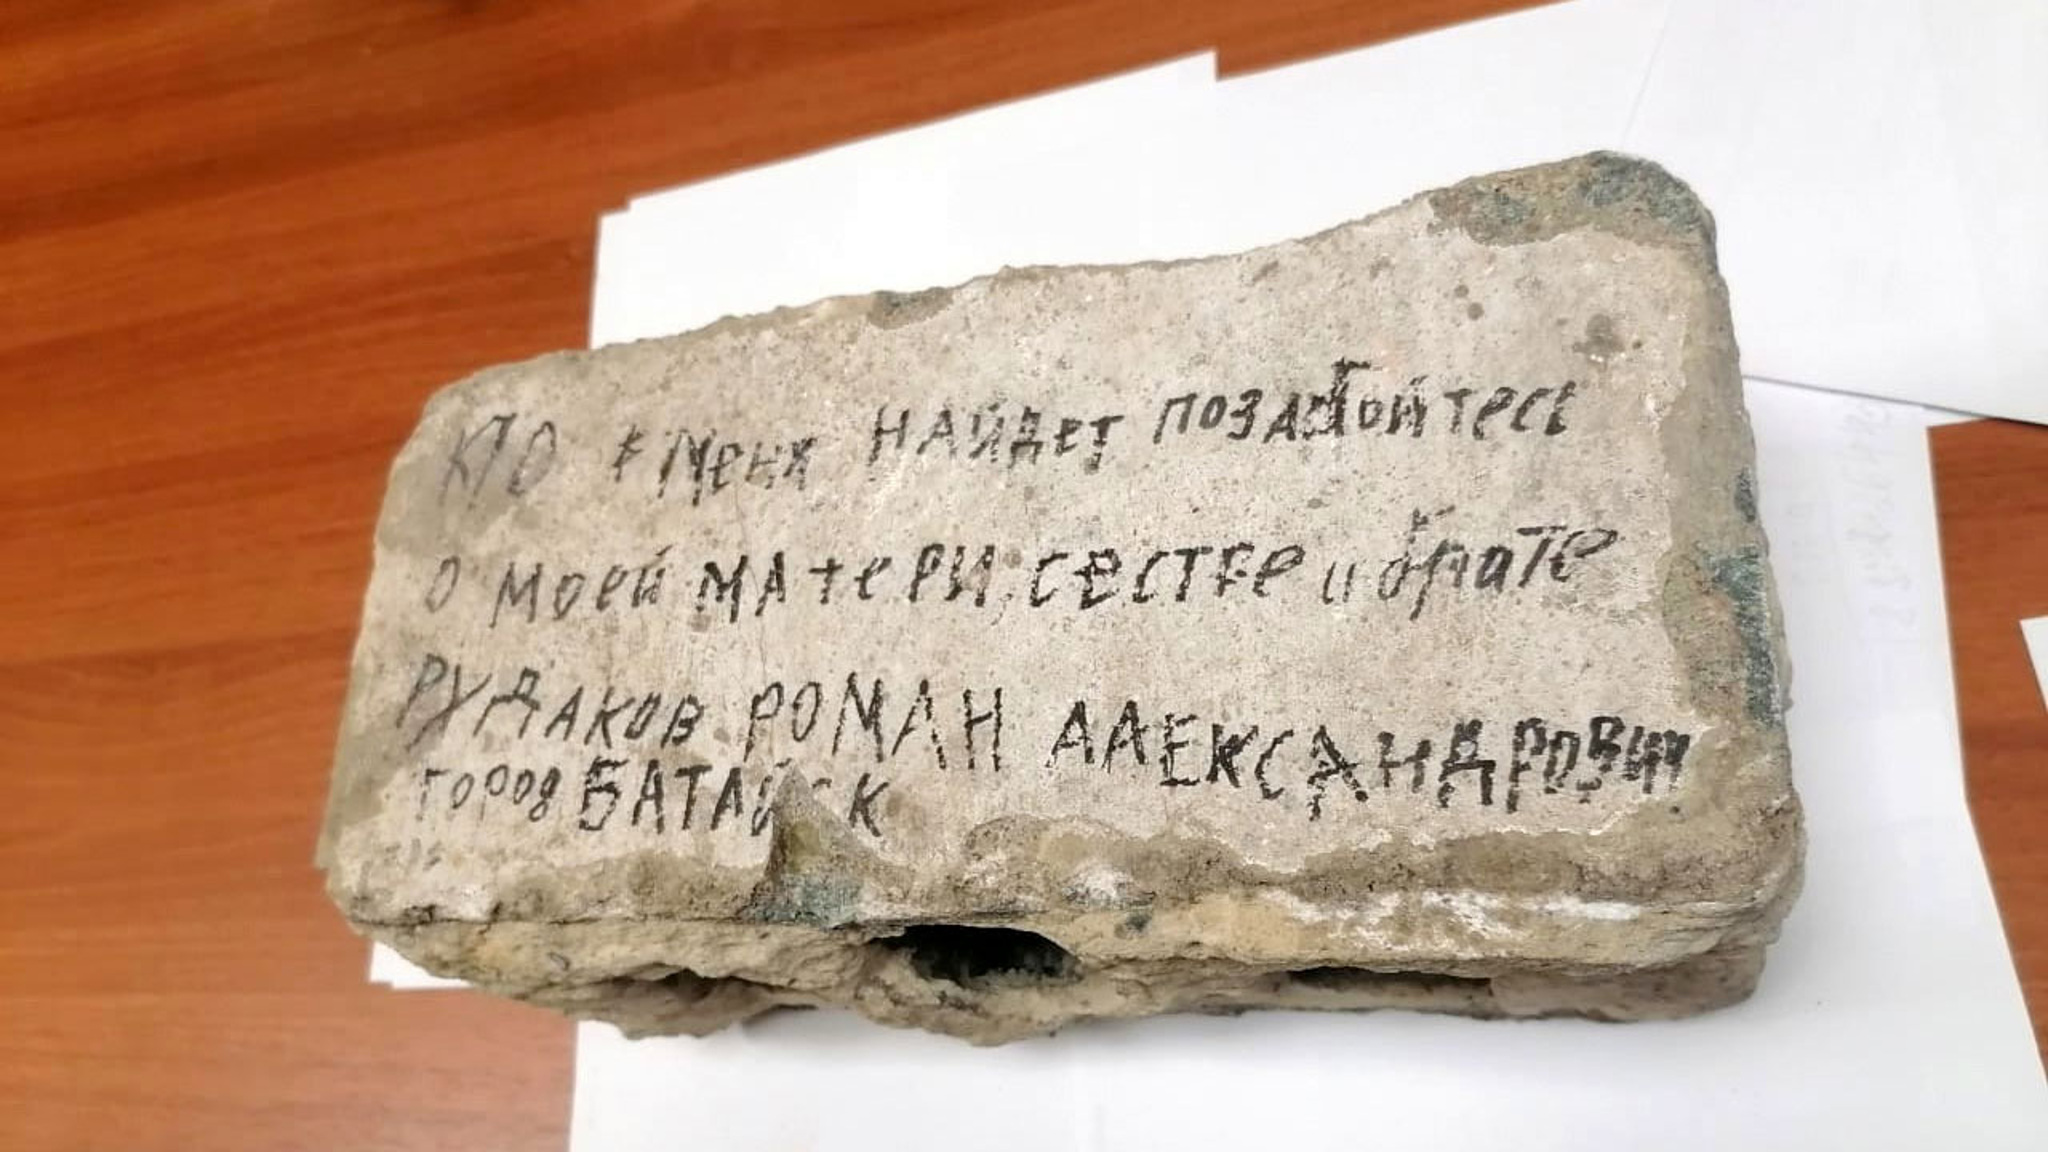 КТО меня НАЙДЕТ ПОЗАБОЙТесь
О МОей МАтеРИ, СЕСТРе и брате
РУДАКОВ РОМАН АЛЕКСАНДРОВИЧ
город БАТАЙСК